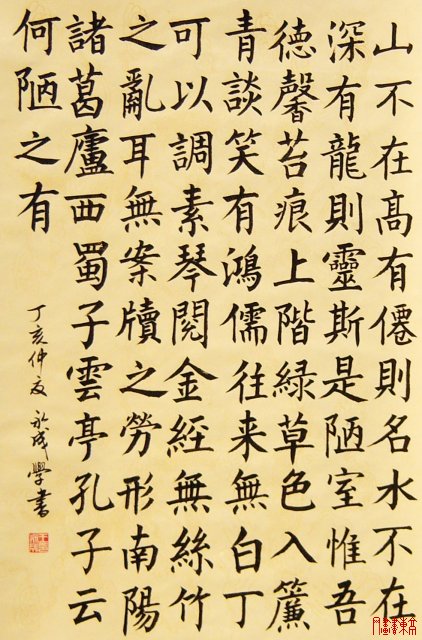 山不在高有僊則名水不在
深有龍則靈斯是陋室惟吾
德馨苔痕上階緑草色入簾
青談笑有鴻儒往来無白丁
可以調素琴閱金經無絲竹
之亂耳無案牘之勞形南陽
諸葛廬西蜀子雲亭孔子云
何陋之有
丁亥仲夏永成學書